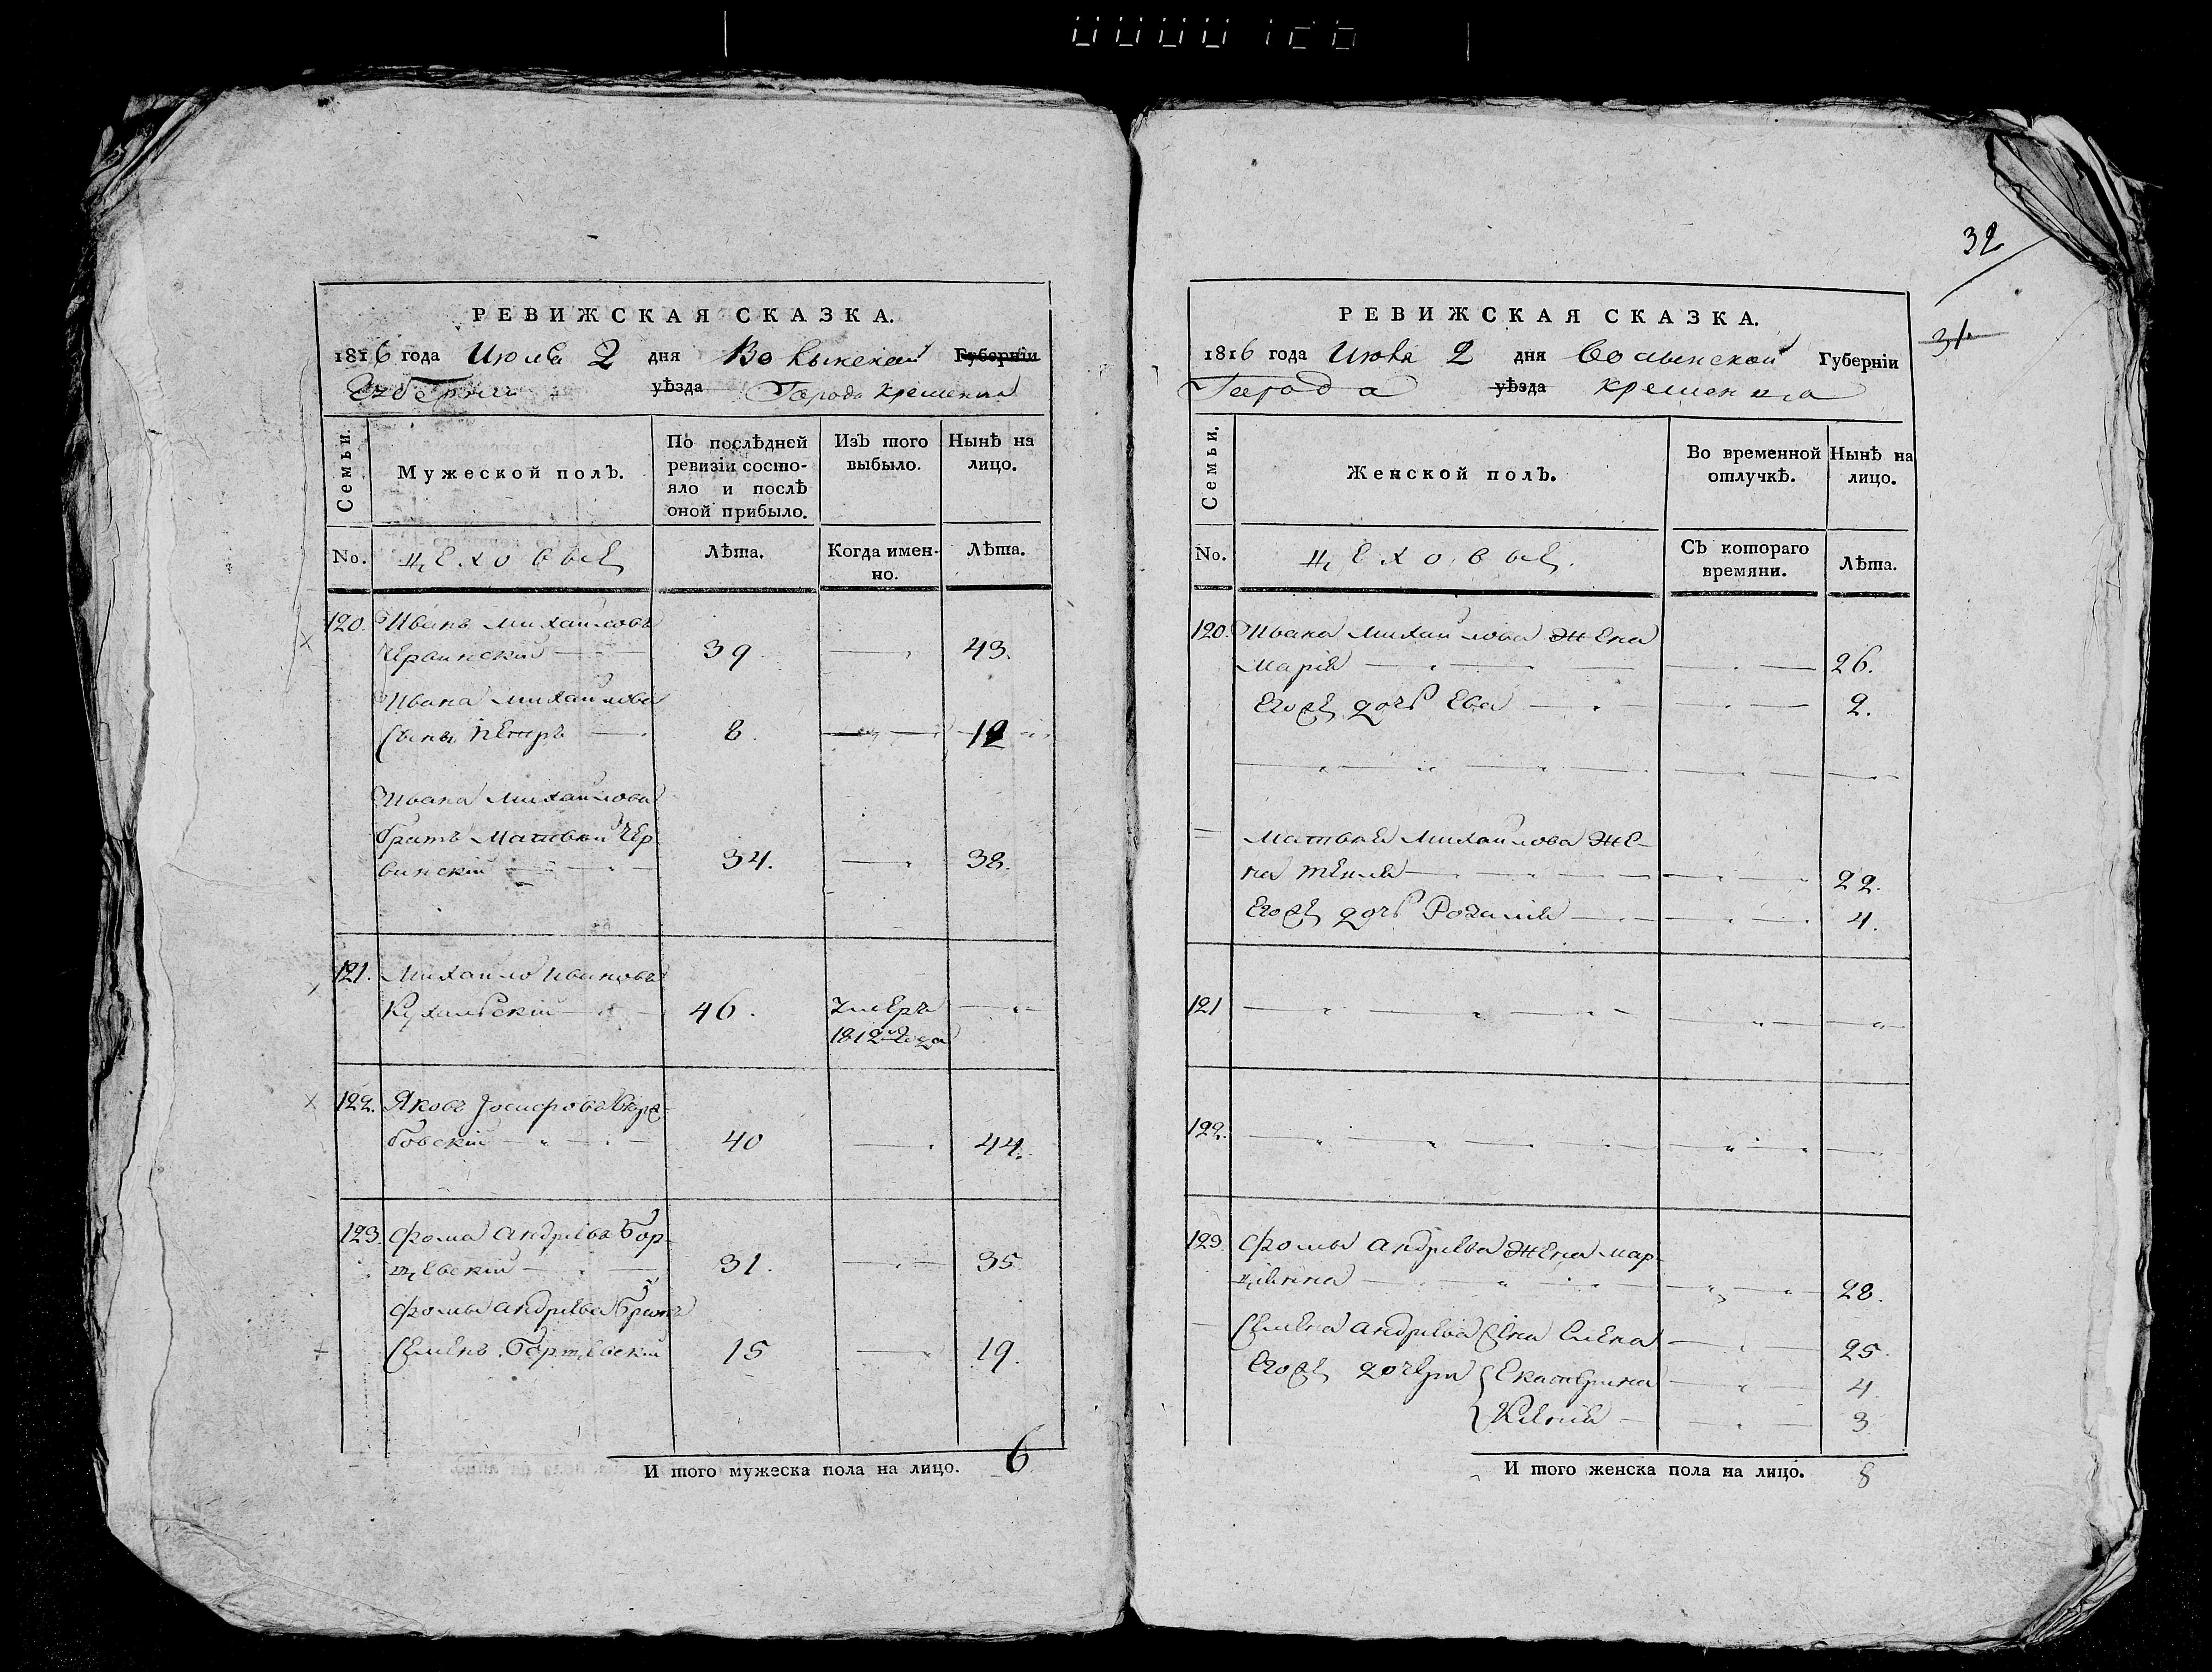 РЕВИЖСКАЯ СКАЗКА.
1816 года Июля 2 дня Волынской Губерніи
Губерніи уѣзда Города Кременца
Семьи.
Мужеской полъ.
По послѣдней ревизіи состо-
яло и послѣ
оной прибыло.
Изъ того выбыло.
Нынѣ на лицо.
No.
цеховые
Лѣта.
Когда имен-
но.
Лѣта.
120. Иванъ Михайловъ
Червинскій 39 43.
Ивана Михайлова
сынъ Петръ 8. 12
Ивана Михайлова
братъ Матвей Чер-
винскій 34. 38.
121. Михайло Ивановъ
46. Умеръ
1812 года
122. Яковъ Іосифовъ
40 44.
123. Фома Андреевъ Бор-
щевскій 31. 35
Фомы Андреева братъ
Семенъ Борщевскій 15 19.
И того мужеска пола на лицо. 6
32
31
РЕВИЖСКАЯ СКАЗКА.
1816 года Июля 2 дня Волынской Губерніи
Города уѣзда Кременца
Семьи.
Женской полъ.
Во временной
отлучкѣ.
Нынѣ на
лицо.
No.
цеховые.
Съ котораго
времяни.
Лѣта.
120. Ивана Михайлова жена
Марія 26.
Егоже дочь Ева 2.
Матвея Михайлова же-
на Текля 22.
Егоже дочь Розалія 4.
121
122.
123. Фомы Андреева жена Мар-
цянна 28.
Семена Андреева жена Елена 25.
Егоже дочери Екатерина 4.
3
И того женска пола на лицо. 8